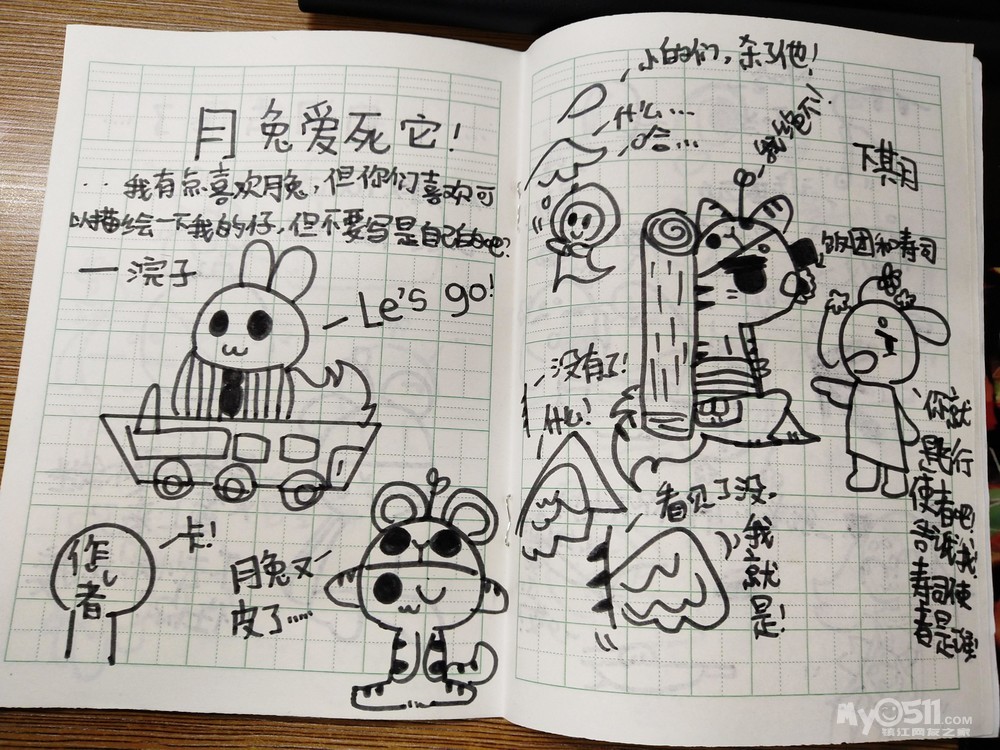 月兔爱死它!
··我有点喜欢月兔,但你们喜欢可
以描绘一下我的仔,但不要写是自己的吧?
一浣子
Le's go!
作者
卡!
月兔又
皮了……
小的们,杀了他!
什么…
哈…
绝不!
下其月
饭团和寿司
没有了!
什么!
看见了没,
我就是!
你就是行使者吧!告诉我寿司使者是谁!
My0511.COM
镇江网友之家